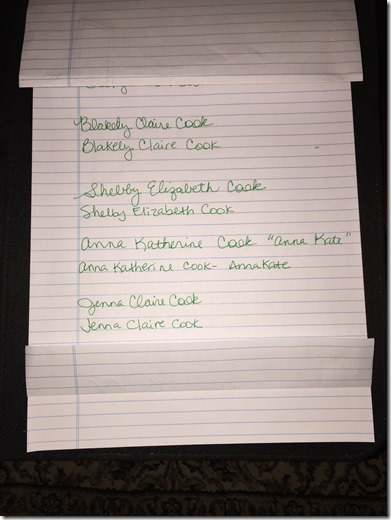 Blakely Claire Cook
Blakely Claire Cook
Shelby Elizabeth Cook
Shelby Elizabeth Cook
Anna Katherine Cook "Anna Kate"
Anna Katherine Cook- AnnaKate
Jenna Claire Cook
Jenna Claire Cook